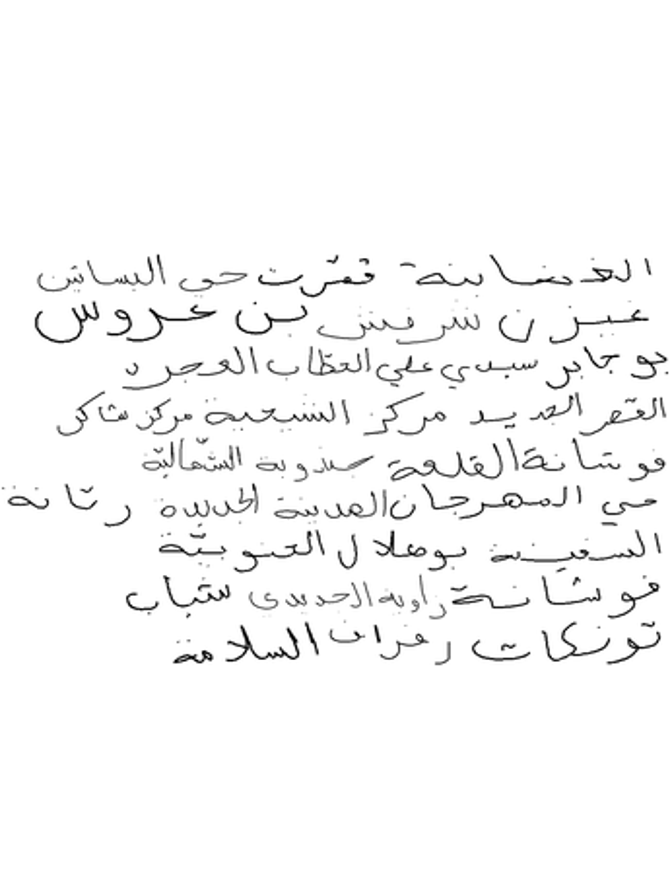 الغضابنة قمرت حي البساتين
غيزن شرفش بن عروس
بو جابر سيدي علي الحطاب الفجرد
القصر الجديد مركز الشيحية مركز شاكر
فوشانة القلعة جندوبة الشمالية
حي المهرجان المدينة الجديدة رتانة
السفينة بوهلال الجنوبية
فوشانة زاوية الجديدي شباب
تونكات زفراف السلامة